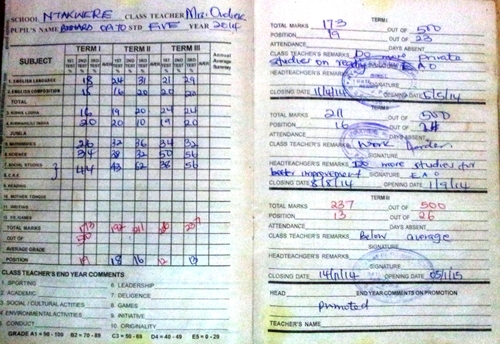 SCHOOL NTAKWERE CLASS TEACHER Mr.
PUPIL'S NAME STD FIVE YEAR 2014
SUBJECT TERM I TERM II TERM III Annual Average Summary
1ST TEST 2ND TEST AVER 1ST TEST 2ND TEST AVER 1ST TEST 2ND TEST AVER
1. ENGLISH LANGUAGE 18 24 31 21 29
2. ENGLISH COMPOSITION 18 16 20 20 20
TOTAL
3. KUSOMA LUGHA 16 19 20 24 24
4. KUANDIKA INSHA 20 20 10 19 20
JUMLA
5. MATHEMATICS 26 32 36 34 32
6. SCIENCE 34 38 32 50 56
7. SOCIAL STUDIES 44 43 62 36 56
8. C.R.E.
9. READING
10. MOTHER TONGUE
11. WRITING
TOTAL MARKS 173 192 211 237
OUT OF 500
AVERAGE GRADE
POSITION 19 18 16 12 13
CLASS TEACHER'S END YEAR COMMENTS
1. SPORTING 6. LEADERSHIP
2. ACADEMIC 7. DELIGENCE
3. SOCIAL / CULTURAL ACTITIES 8. GAMES
4. ENVIRONMENTAL ACTIVITIES 9. INITIATIVE
5. CONDUCT 10. ORIGINALITY
GRADE A1 = 90 - 100 B2 = 70 - 89 C3 = 50 - 69 D4 = 40 - 49 E5 = 0 - 29
TERM I
TOTAL MARKS 173 OUT OF 500
POSITION 19 OUT OF 23
ATTENDANCE DAYS ABSENT
CLASS TEACHER'S REMARKS Do more private
studies on E A O
HEADTEACHER'S REMARKS
CLOSING DATE 11/4/14 OPENING DATE 5/5/14
TERM II
TOTAL MARKS 211 OUT OF 500
POSITION 16 OUT OF 24
ATTENDANCE DAYS ABSENT
CLASS TEACHER'S REMARKS Work harder
SIGNATURE
HEADTEACHER'S REMARKS Do more studies for
better improvement E A O
CLOSING DATE 8/8/14 OPENING DATE 1/9/14
TERM III
TOTAL MARKS 237 OUT OF 500
POSITION 13 OUT OF 26
ATTENDANCE DAYS ABSENT
CLASS TEACHER'S REMARKS Below average
SIGNATURE
HEADTEACHER'S REMARKS
SIGNATURE
CLOSING DATE 14/11/14 OPENING DATE 05/1/15
HEAD END YEAR COMMENTS ON PROMOTION
promoted
TEACHER'S NAME